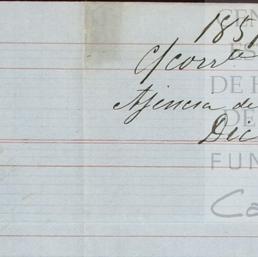 185
C/corr.te
Ajencia de
Dic
CEN
ES
DE H
DE
FUN
Ca